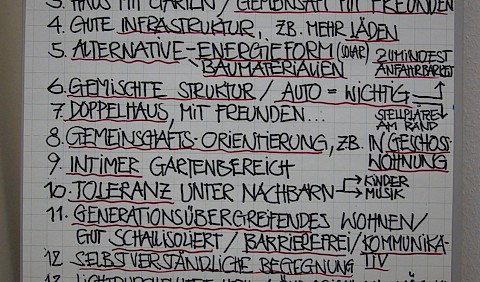 3. HAUS MIT GARTEN / GEMEINSAM MIT FREUNDEN
4. GUTE INFRASTRUKTUR, ZB. MEHR LÄDEN
5. ALTERNATIVE-ENERGIEFORM (SOLAR) ZUMINDEST
BAUMATERIALIEN ANFAHRBARKEIT
6. GEMISCHTE STRUKTUR / AUTO = WICHTIG
7. DOPPELHAUS, MIT FREUNDEN... STELLPLÄTZE
AM RAND
8. GEMEINSCHAFTS-ORIENTIERUNG, ZB. IN GESCHOSS
WOHNUNG
9. INTIMER GARTENBEREICH
10. TOLERANZ UNTER NACHBARN KINDER
MUSIK
11. GENERATIONSÜBERGREIFENDES WOHNEN/
GUT SCHALLISOLIERT / BARRIEREFREI / KOMMUNIKA-
TIV
12. SELBSTVERSTÄNDLICHE BEGEGNUNG